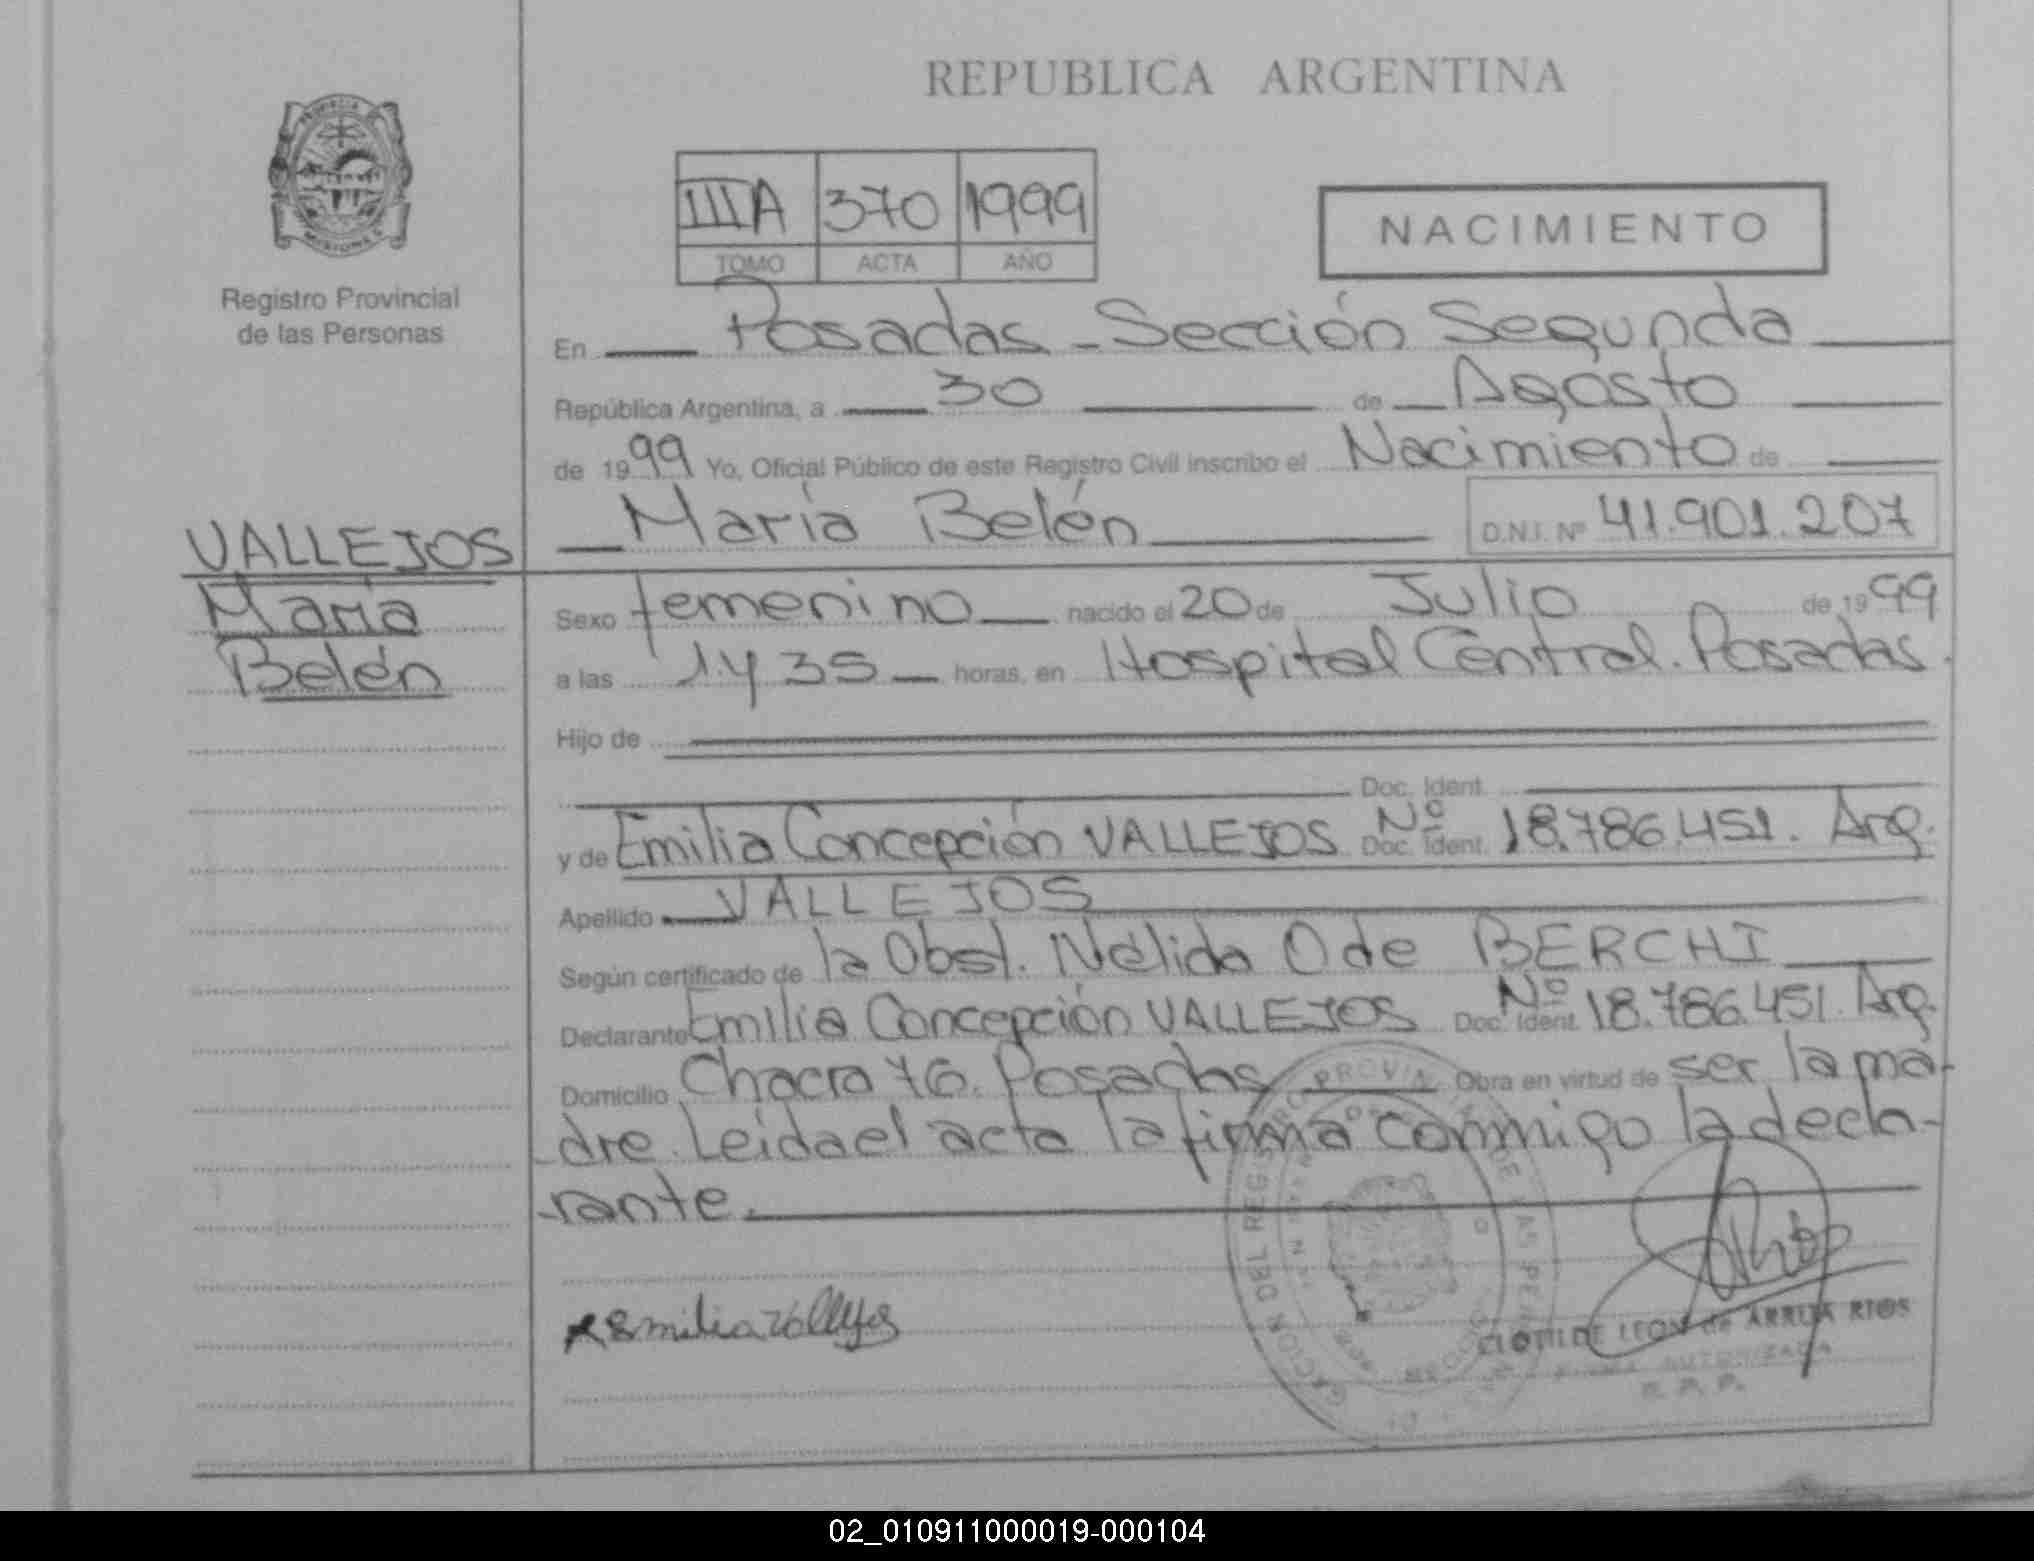 REPUBLICA ARGENTINA
PROVINCIA
MISIONES
Registro Provincial
de las Personas
IIIA 370 1999
TOMO ACTA AÑO
NACIMIENTO
En Posadas - Sección Segunda
República Argentina, a 30 de Agosto
de 1999 Yo, Oficial Público de este Registro Civil inscribo el Nacimiento de
María Belén D.N.I. Nº 41.901.207
VALLEJOS
María
Belén
Sexo femenino nacido el 20 de Julio de 1999
a las 1 y 35 horas, en Hospital Central. Posadas.
Hijo de
Doc. Ident.
y de Emilia Concepción VALLEJOS Doc. Ident. Nº 18.786.451. Arg.
Apellido VALLEJOS
Según certificado de la Obst. Nélida O de BERCHI
Declarante Emilia Concepción VALLEJOS Doc. Ident. Nº 18.786.451. Arg.
Domicilio Chacra 76. Posadas Obra en virtud de ser la ma-
dre. Leida el acta la firma conmigo la decla-
rante.
Emilia Vallejos
CLOTILDE LEON de ARRUA RIOS
FIRMA AUTORIZADA
R. P. P.
02_010911000019-000104